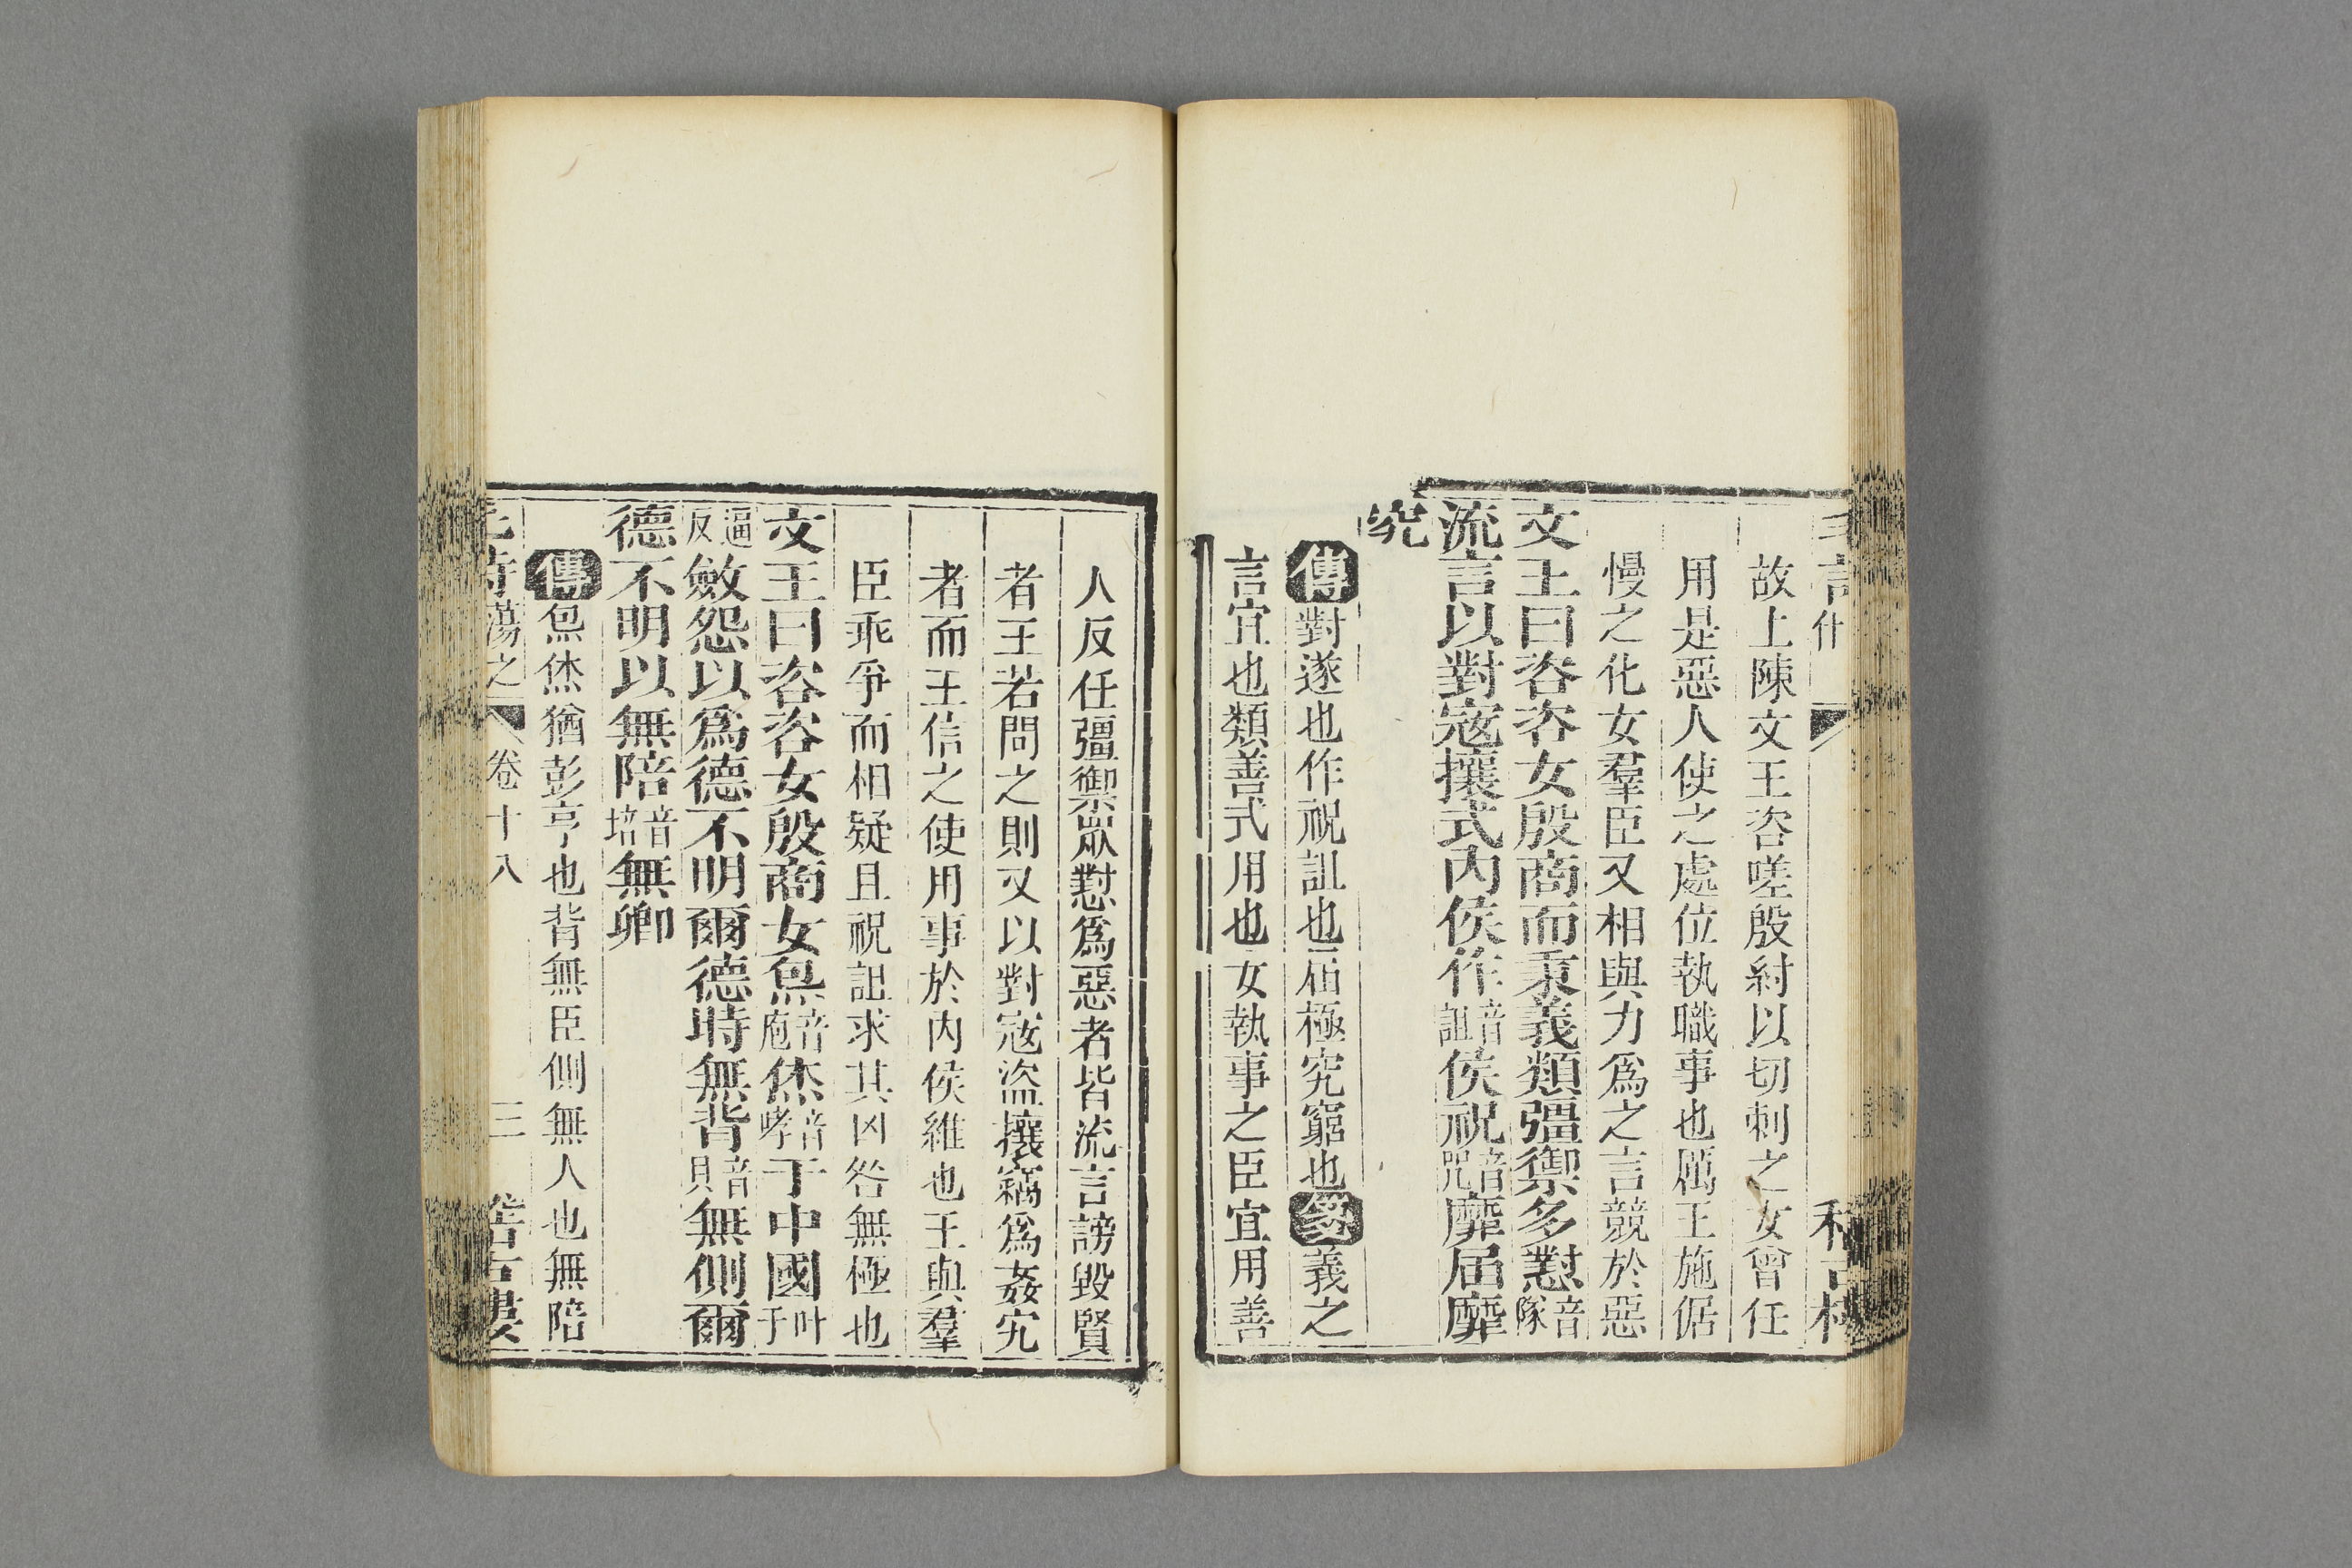 故上陳文王咨嗟殷紂以切刺之女曾任
用是惡人使之處位執職事也厲王施倨
慢之化女羣臣又相與力爲之言競於惡
文王曰咨咨女殷商而秉義類彊禦多懟音隊
流言以對寇攘式內侯作音詛侯祝音咒靡屆靡
究
傳對遂也作祝詛也屆極究窮也箋義之
言宜也類善式用也女執事之臣宜用善
人反任彊禦眾懟爲惡者皆流言謗毀賢
者王若問之則又以對寇盜攘竊爲姦宄
者而王信之使用事於內侯維也王與羣
臣乖爭而相疑且祝詛求其凶咎無極也
文王曰咨咨女殷商女炰音庖烋音哮于中國叶于
逼反斂怨以爲德不明爾德時無背音貝無側爾
德不明以無陪音培無卿
傳炰烋猶彭亨也背無臣側無人也無陪
詩蕩之 卷十八 三